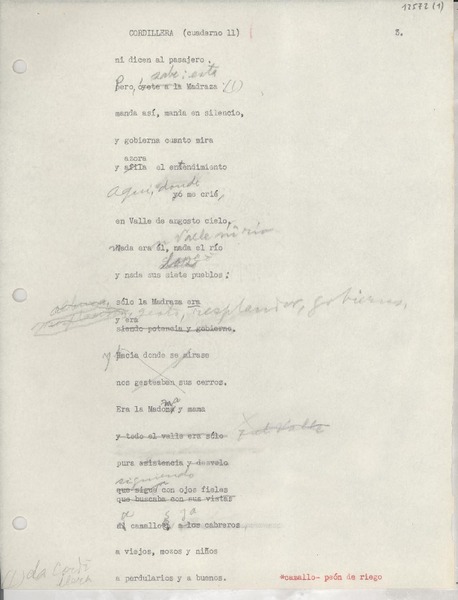 12572 (1)
CORDILLERA (cuaderno 11) 3.
ni dicen al pasajero.
sabe: está
Pero, óyete a la Madraza (1)
manda así, manda en silencio,
y gobierna cuanto mira
azora
y afila el entendimiento
Aquí, donde
yo me crié,
en Valle de angosto cielo,
Valle ni río
Nada era él, nada el río
y nada sus siete pueblos;
sólo la Madraza era
gesto, resplandor, gobierno,
y era
siendo potencia y gobierno.
Hacia donde se mirase
nos gesteaban sus cerros.
Era la Madona y mama
y todo el valle era sólo
el Valle
pura existencia y desvelo
siguiendo
que sigue con ojos fieles
que buscaba con sus vistas
al camallo, a los cabreros
a viejos, mozos y niños
a perdularios y a buenos.
(1) La Cordi
llera
*camallo- peón de riego